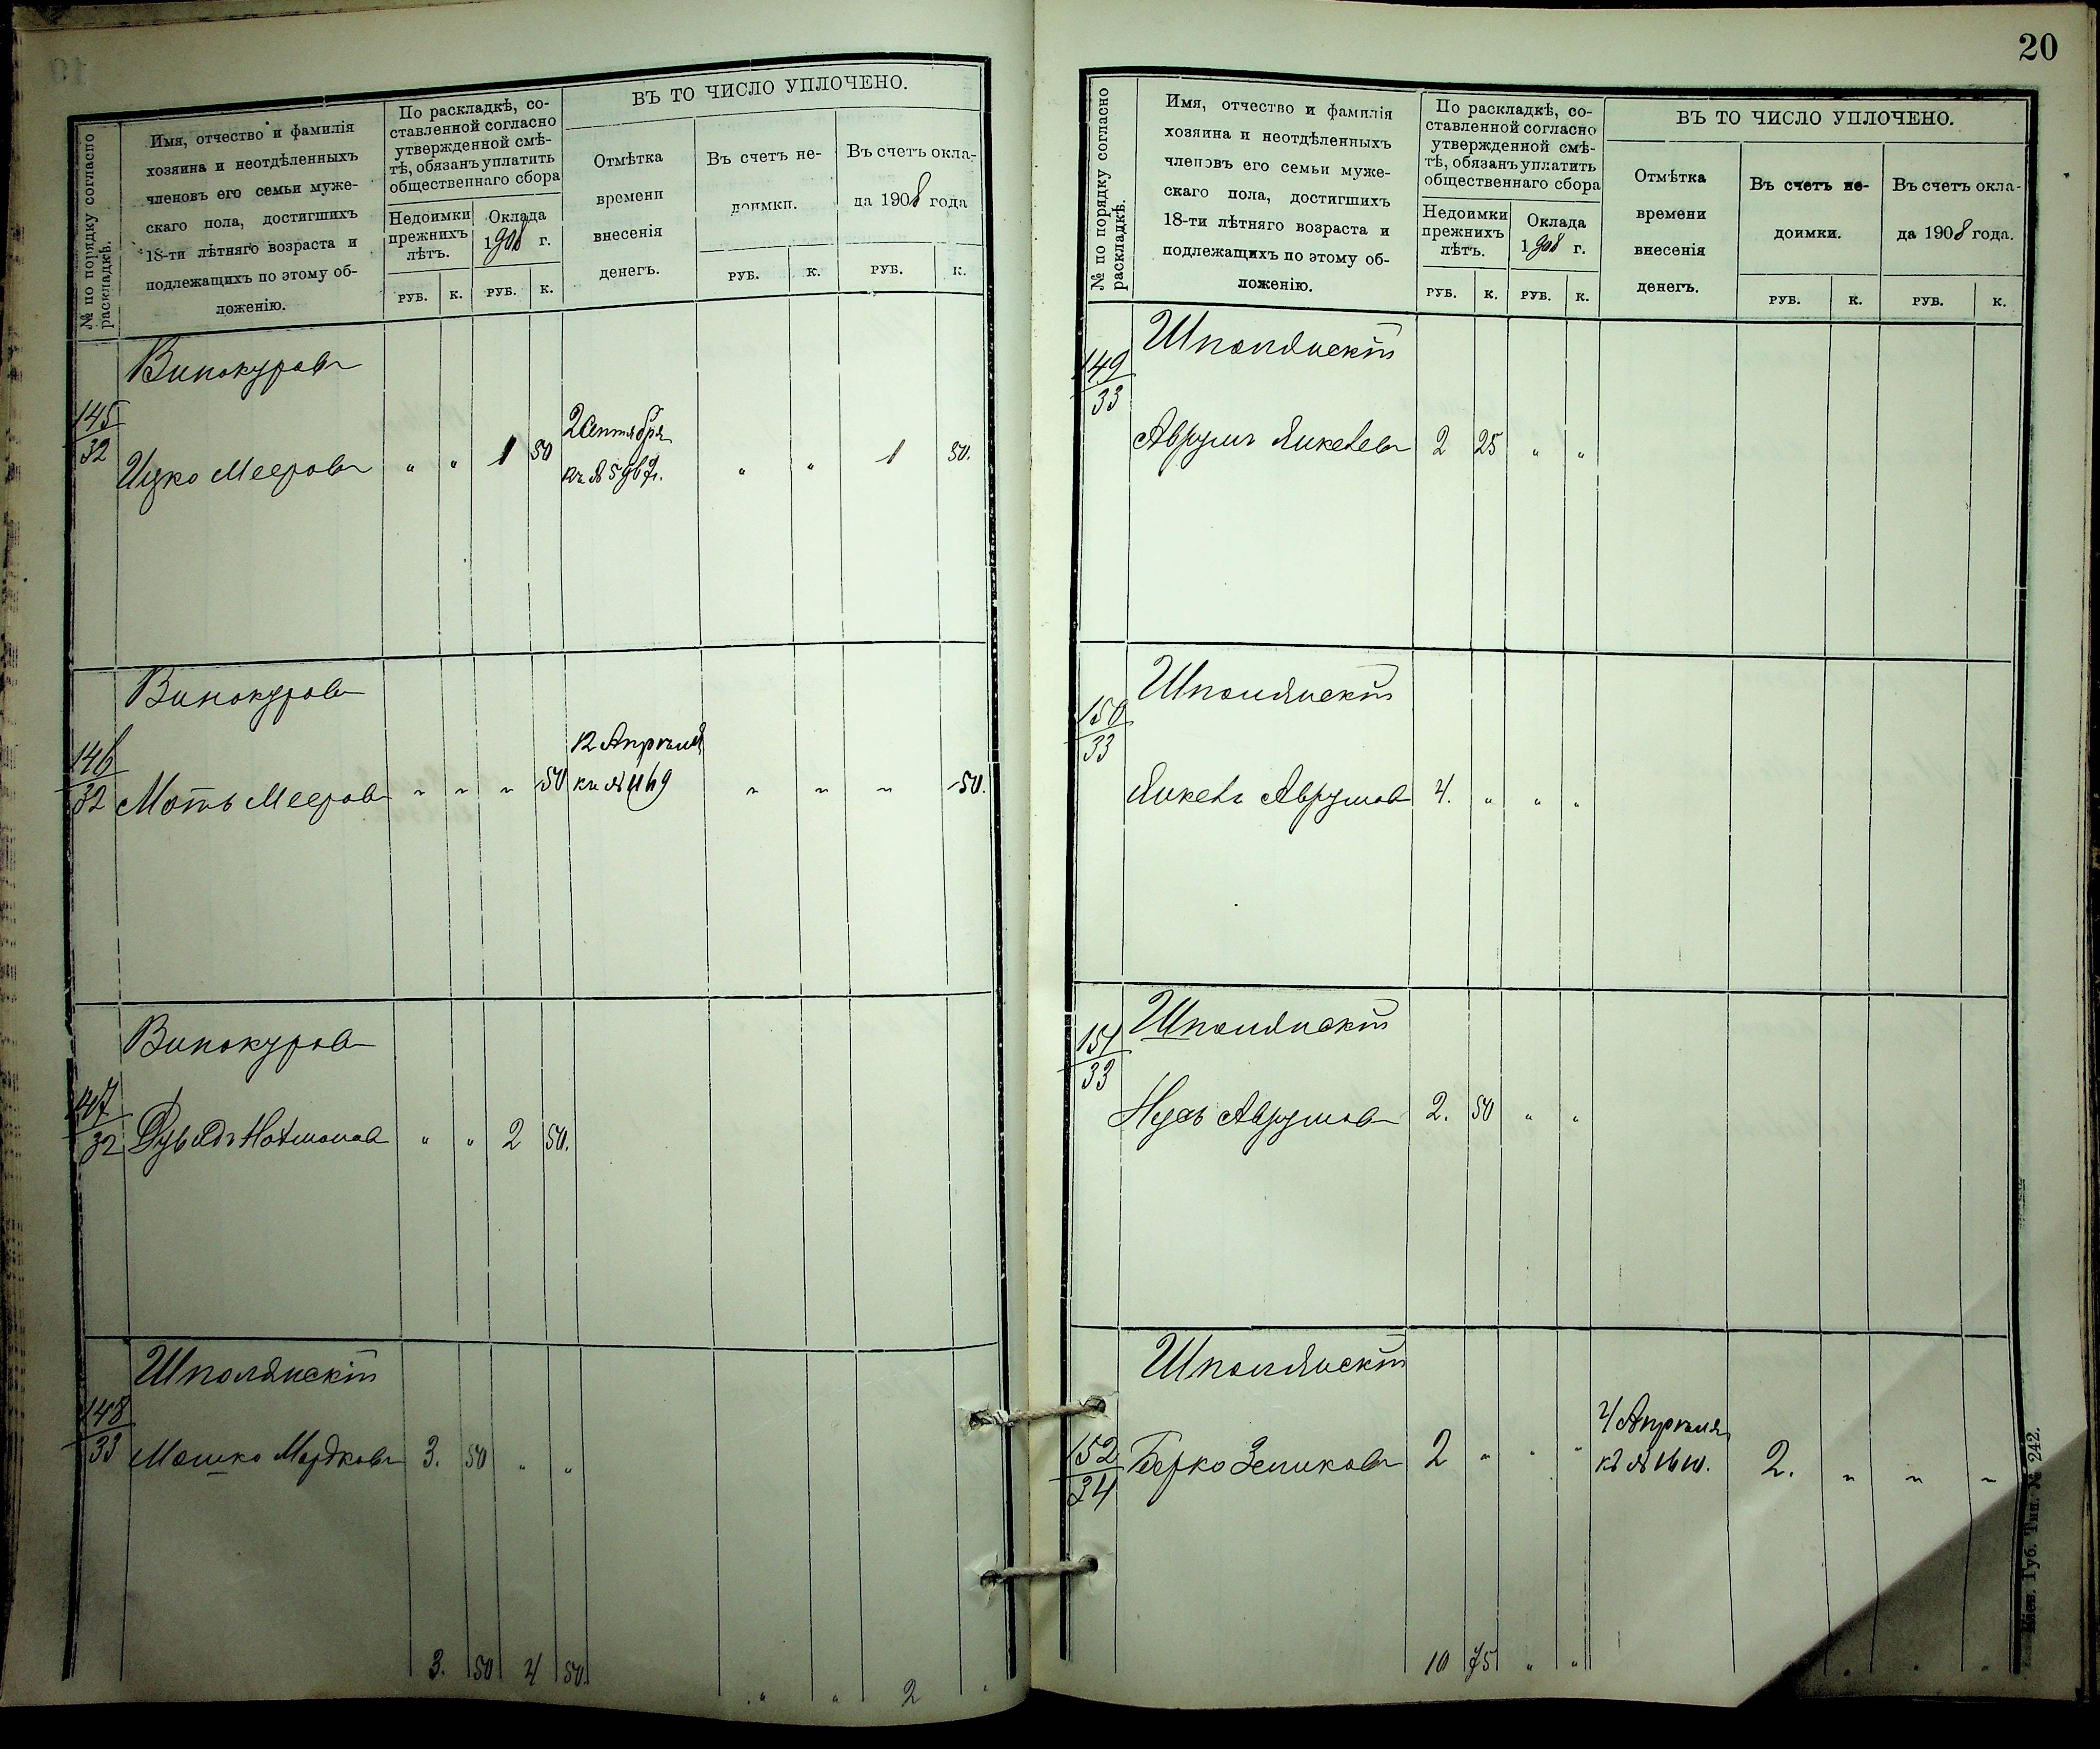 № по порядку согласно раскладкѣ.
Имя, отчество и фамилія
хозяина и неотдѣленныхъ
членовъ его семьи муже-
скаго пола, достигшихъ
18-ти лѣтняго возраста и
подлежащихъ по этому об-
ложенію.
По раскладкѣ, со-
ставленной согласно
утвержденной смѣ-
тѣ, обязанъ уплатить
общественнаго сбора
Недоимки
прежнихъ
лѣтъ.
Оклада
1908 г.
РУБ. К. РУБ. К.
ВЪ ТО ЧИСЛО УПЛОЧЕНО.
Отмѣтка
времени
внесенія
денегъ.
Въ счетъ не-
доимки.
Въ счетъ окла-
да 1908 года
РУБ. К. РУБ. К.
Винокуровъ
145/32 Ицко Мееровъ " " 1 50 2 Сентября " " 1 50.
Винокуров
146/32 Моть Мееров " " " 50 12 Апрѣля " " " 50.
къ № 1169
Винокуров
147/32 " " 2 50.
Шполянскій
148/33 Мошко Мордковъ 3. 50 " "
3. 50 4 50.
" " 2 "
20
№ по порядку согласно раскладкѣ.
Имя, отчество и фамилія
хозяина и неотдѣленныхъ
членовъ его семьи муже-
скаго пола, достигшихъ
18-ти лѣтняго возраста и
подлежащихъ по этому об-
ложенію.
По раскладкѣ, со-
ставленной согласно
утвержденной смѣ-
тѣ, обязанъ уплатить
общественнаго сбора
Недоимки
прежнихъ
лѣтъ.
Оклада
1908 г.
РУБ. К. РУБ. К.
ВЪ ТО ЧИСЛО УПЛОЧЕНО.
Отмѣтка
времени
внесенія
денегъ.
Въ счетъ не-
доимки.
Въ счетъ окла-
да 1908 года.
РУБ. К. РУБ. К.
Шполянскій
149/33 Аврумъ Янкелевъ 2 25 " "
Шполянскій
150/33 Янкель Аврумов 4. " " "
Шполянскій
151/33 Аврумов 2. 50 " "
Шполянскій
152/34 Берко Зеликовъ 2 " " " 4 Апрѣля 2. " " "
10 75 " "
Кіев. Губ. Тип. № 242.